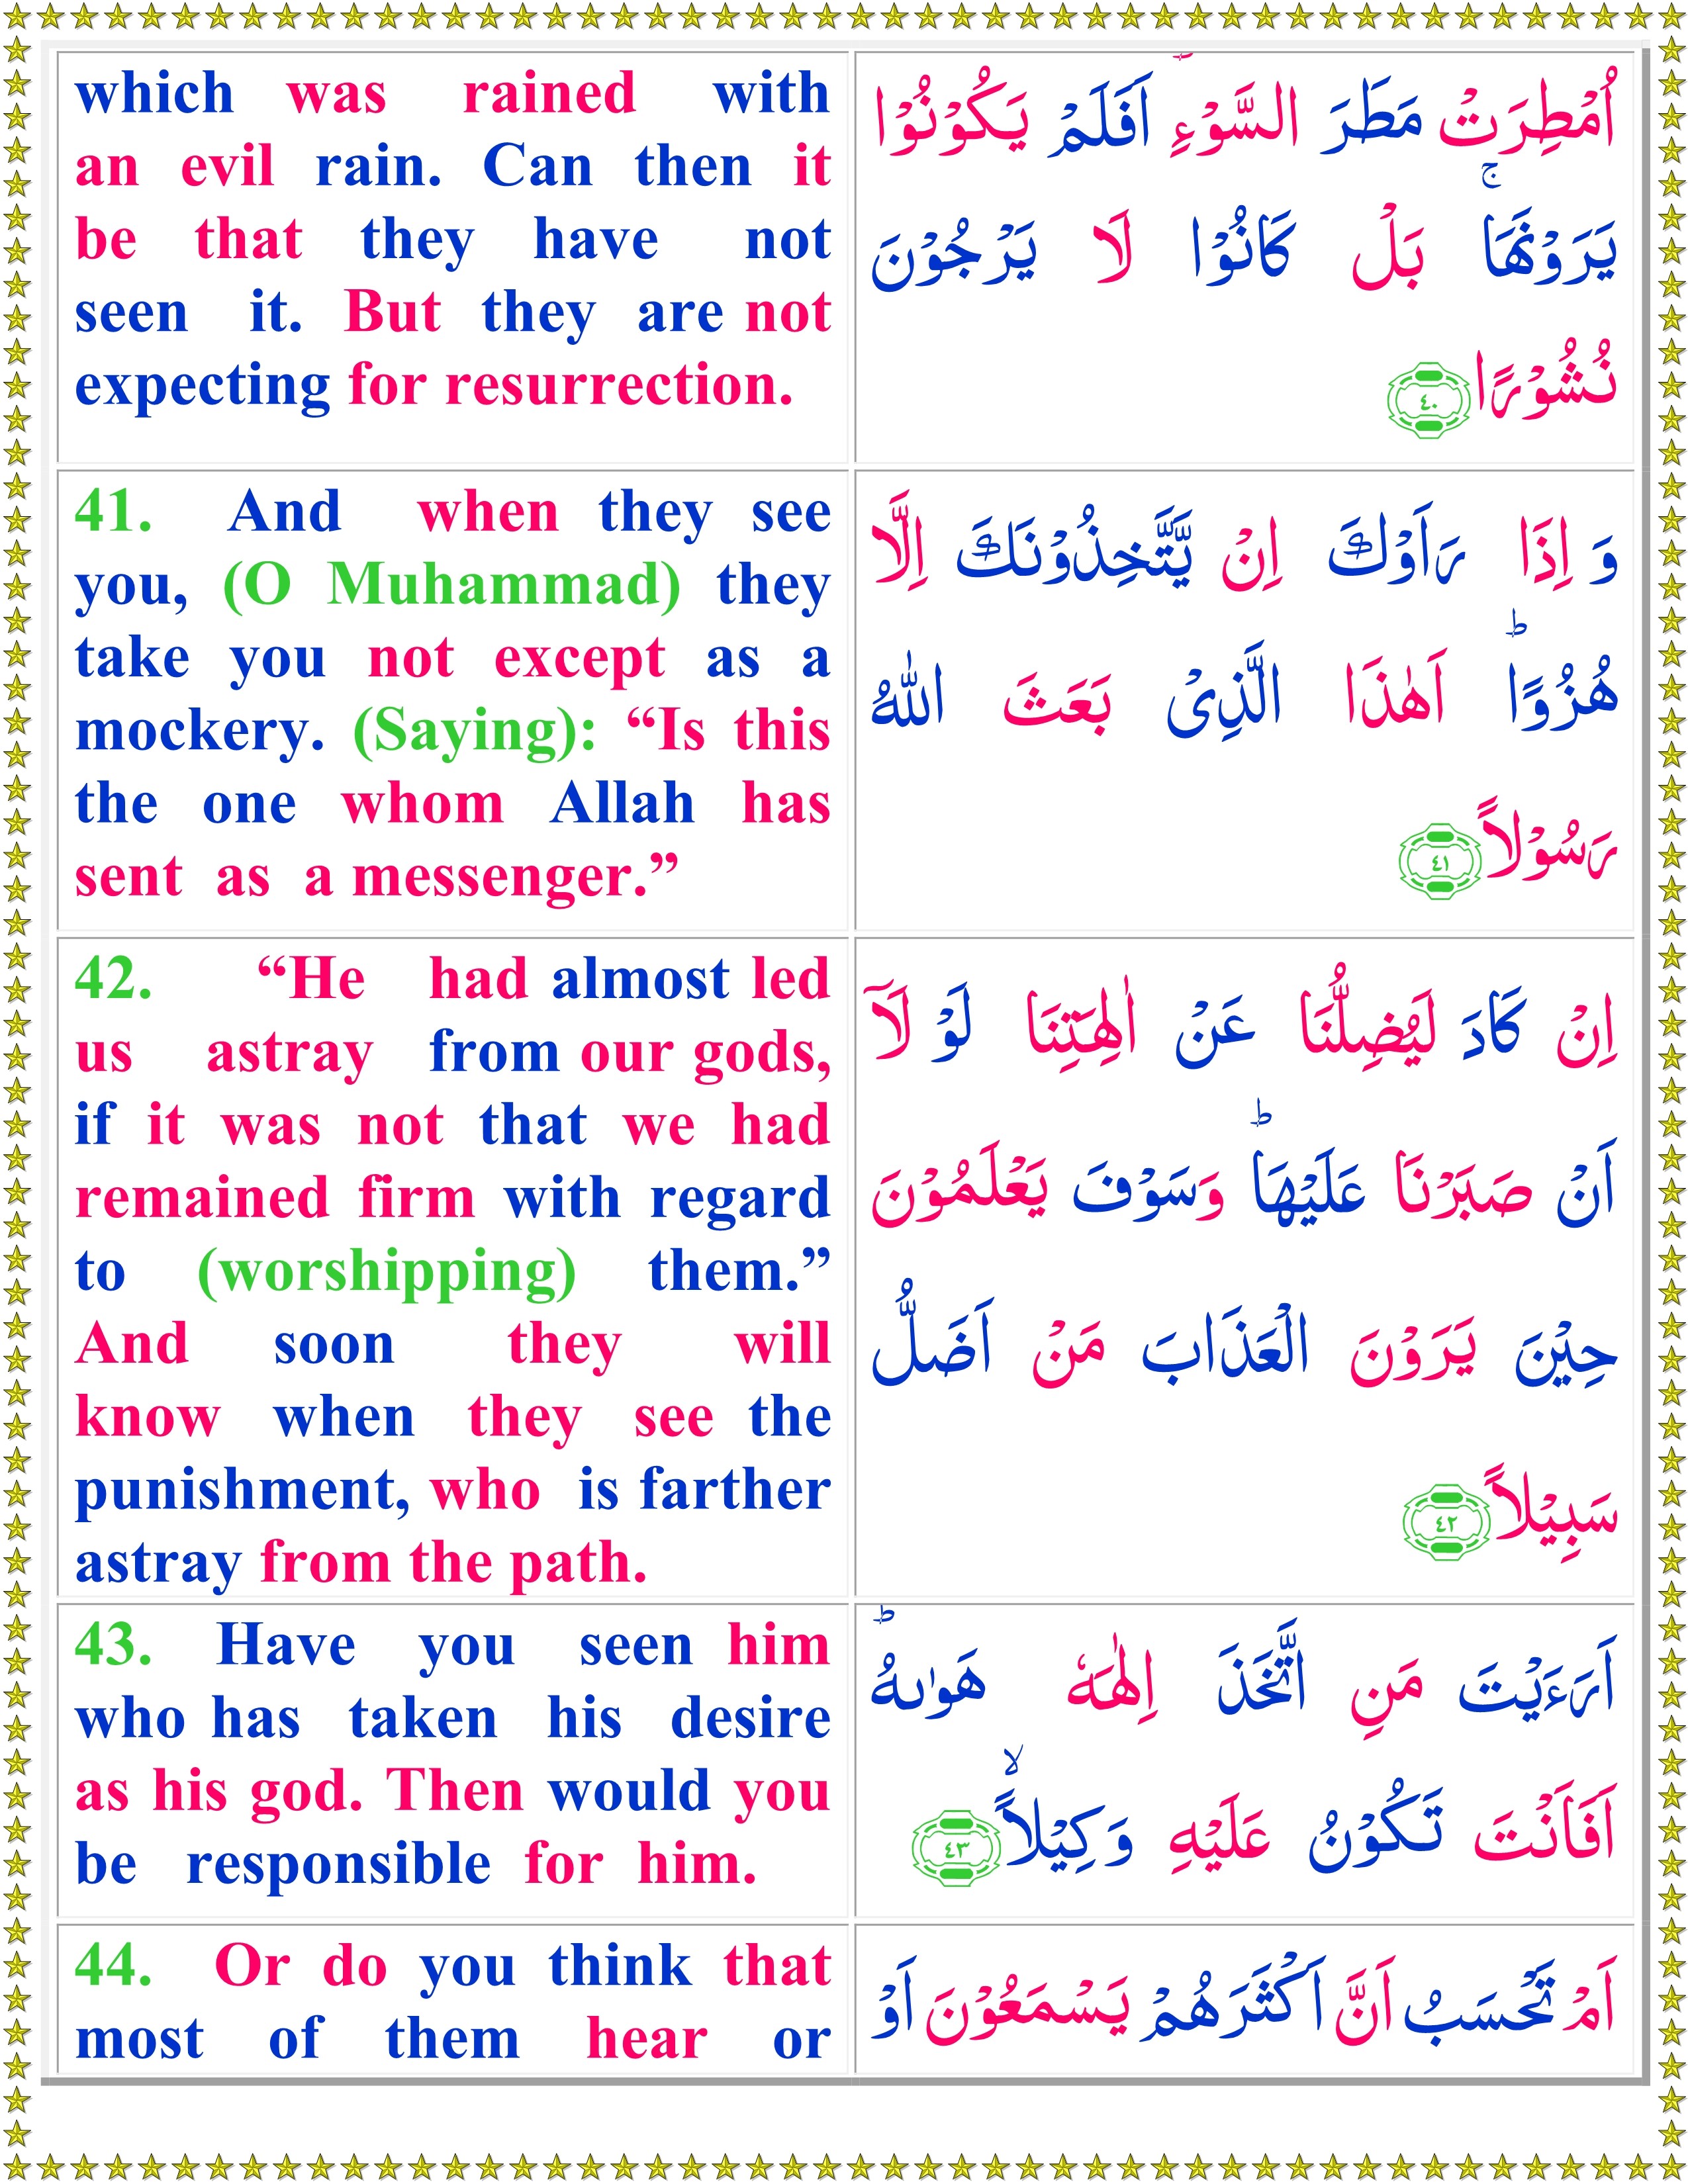 which was rained with
an evil rain. Can then it
be that they have not
seen it. But they are not
expecting for resurrection.
اُمْطِرَتْ مَطَرَ السَّوْءِ ؕ اَفَلَمْ يَكُوْنُوْا
يَرَوْنَهَا ۚ بَلْ كَانُوْا لَا يَرْجُوْنَ
نُشُوْرًا ٤٠
41. And when they see
you, (O Muhammad) they
take you not except as a
mockery. (Saying): “Is this
the one whom Allah has
sent as a messenger.”
وَ اِذَا رَاَوْكَ اِنْ يَّتَّخِذُوْنَكَ اِلَّا
هُزُوًا ؕ اَهٰذَا الَّذِىْ بَعَثَ اللّٰهُ
رَسُوْلاً ٤١
42. “He had almost led
us astray from our gods,
if it was not that we had
remained firm with regard
to (worshipping) them.”
And soon they will
know when they see the
punishment, who is farther
astray from the path.
اِنْ كَادَ لَيُضِلُّنَا عَنْ اٰلِهَتِنَا لَوْ لَاۤ
اَنْ صَبَرْنَا عَلَيْهَا ؕ وَسَوْفَ يَعْلَمُوْنَ
حِيْنَ يَرَوْنَ الْعَذَابَ مَنْ اَضَلُّ
سَبِيْلاً ٤٢
43. Have you seen him
who has taken his desire
as his god. Then would you
be responsible for him.
اَرَءَيْتَ مَنِ اتَّخَذَ اِلٰهَهٗ هَوٰٮهُ ؕ
اَفَاَنْتَ تَكُوْنُ عَلَيْهِ وَكِيْلاً ۙ ٤٣
44. Or do you think that
most of them hear or
اَمْ تَحْسَبُ اَنَّ اَكْثَرَهُمْ يَسْمَعُوْنَ اَوْ